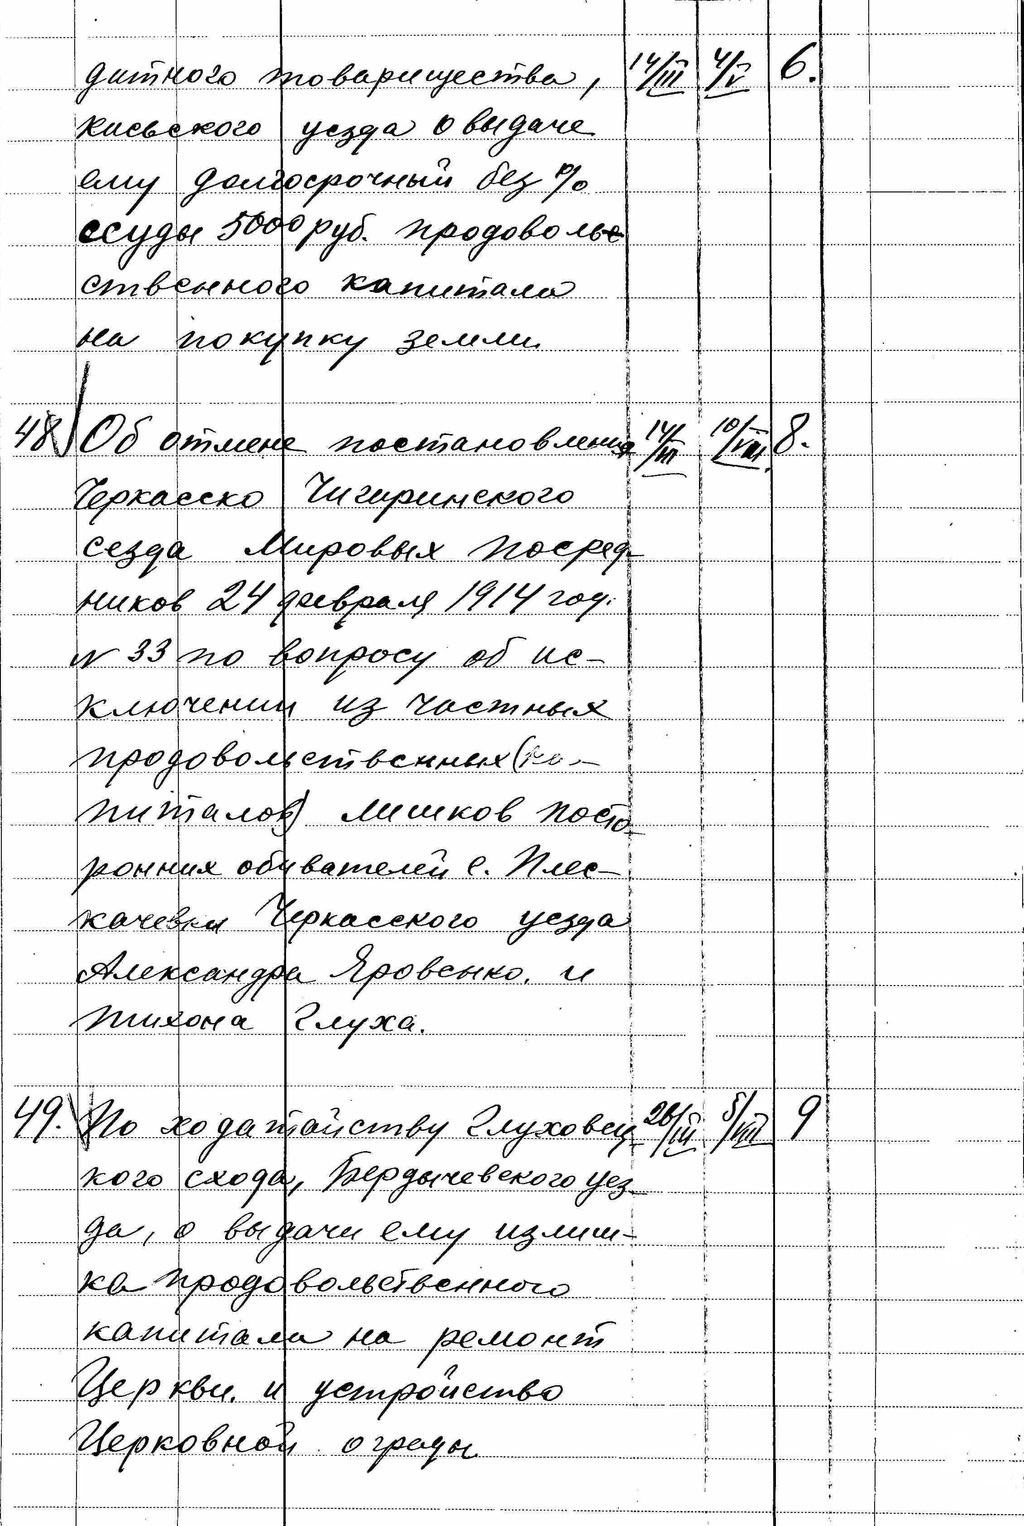 дитного товарищества, 14/III 4/V 6.
Киевского уезда о выдаче
ему долгосрочный без %
ссуды 5000 руб. продоволь
ственного капитала
на покупку земли.
48 Об отмене постановления 14/III 10/VIII 8.
Черкасско Чигиринского
сезда Мировых Посред-
ников 24 февраля 1914 год.
N 33 по вопросу об ис-
ключении из частных
продовольственных (ка-
питалов) лишков посто-
ронних обывателей с. Плес-
качевки Черкасского уезда
Александра Яровенко. и
Тихона Глуха.
49. По ходатайству Глуховец- 26/III 5/VIII 9
кого схода, Бердычевского уез-
да, о выдачи ему излиш-
ка продовольственного
капитала на ремонт
Церкви. и устройство
Церковной ограды